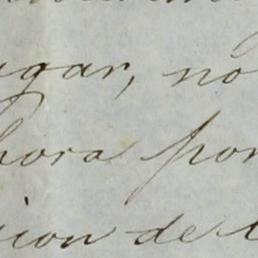 ugar, no
hora por
cion de l